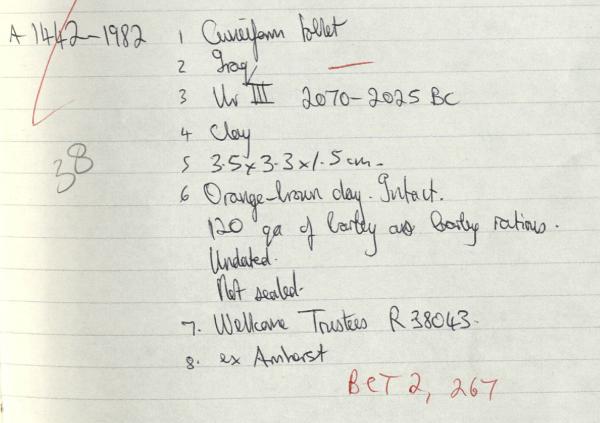 A 1442-1982 1 Cuneiform tablet
2 Iraq
3 Ur III 2070-2025 BC
4 Clay
5 3.5 x 3.3 x 1.5 cm.
38
6 Orange-brown clay. Intact.
120 qa of barley as barley rations.
Undated.
Not sealed.
7. Wellcome Trustees R 38043.
8. ex Amherst
BCT 2, 267